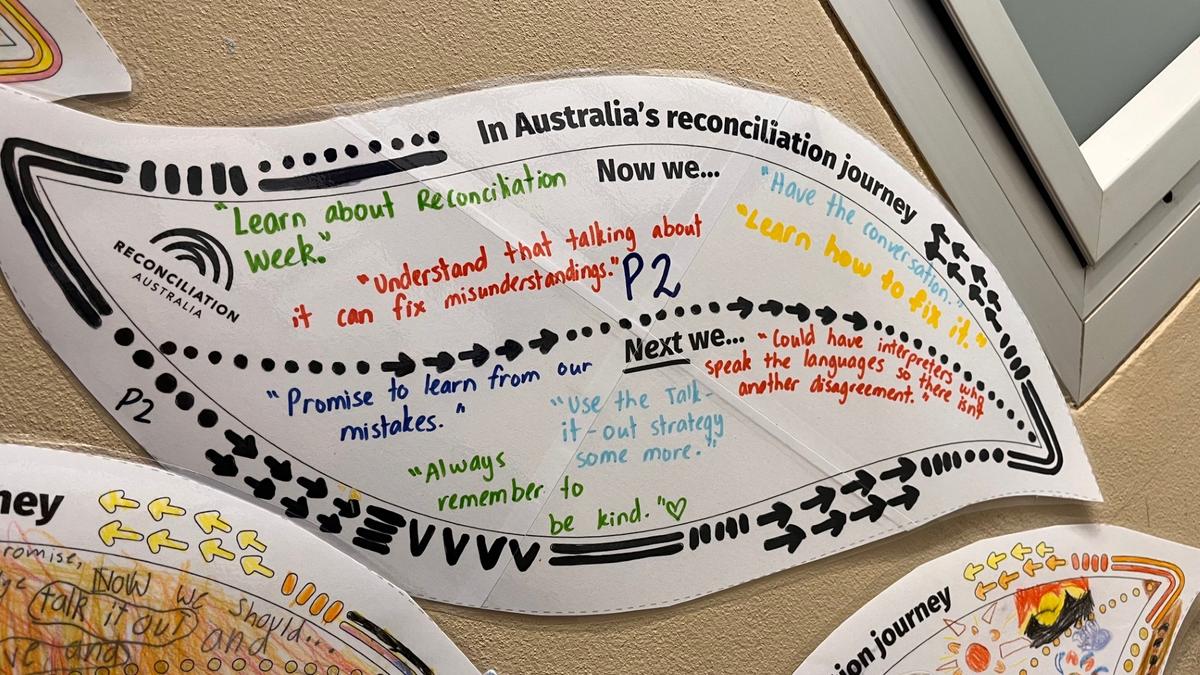 In Australia's reconciliation journey
Now we...
"Learn about Reconciliation
Week."
"Have the conversation."
"Learn how to fix it."
"Understand that talking about
it can fix misunderstandings."
P2
RECONCILIATION
AUSTRALIA
Next we...
"Could have interpreters who
speak the languages so there isn't
another disagreement."
"Promise to learn from our
mistakes."
"Use the Talk-
it-out strategy
some more."
"Always
remember to
be kind."♡
P2
ney
romise,
Now we should...
talk it out and
and
ion journey